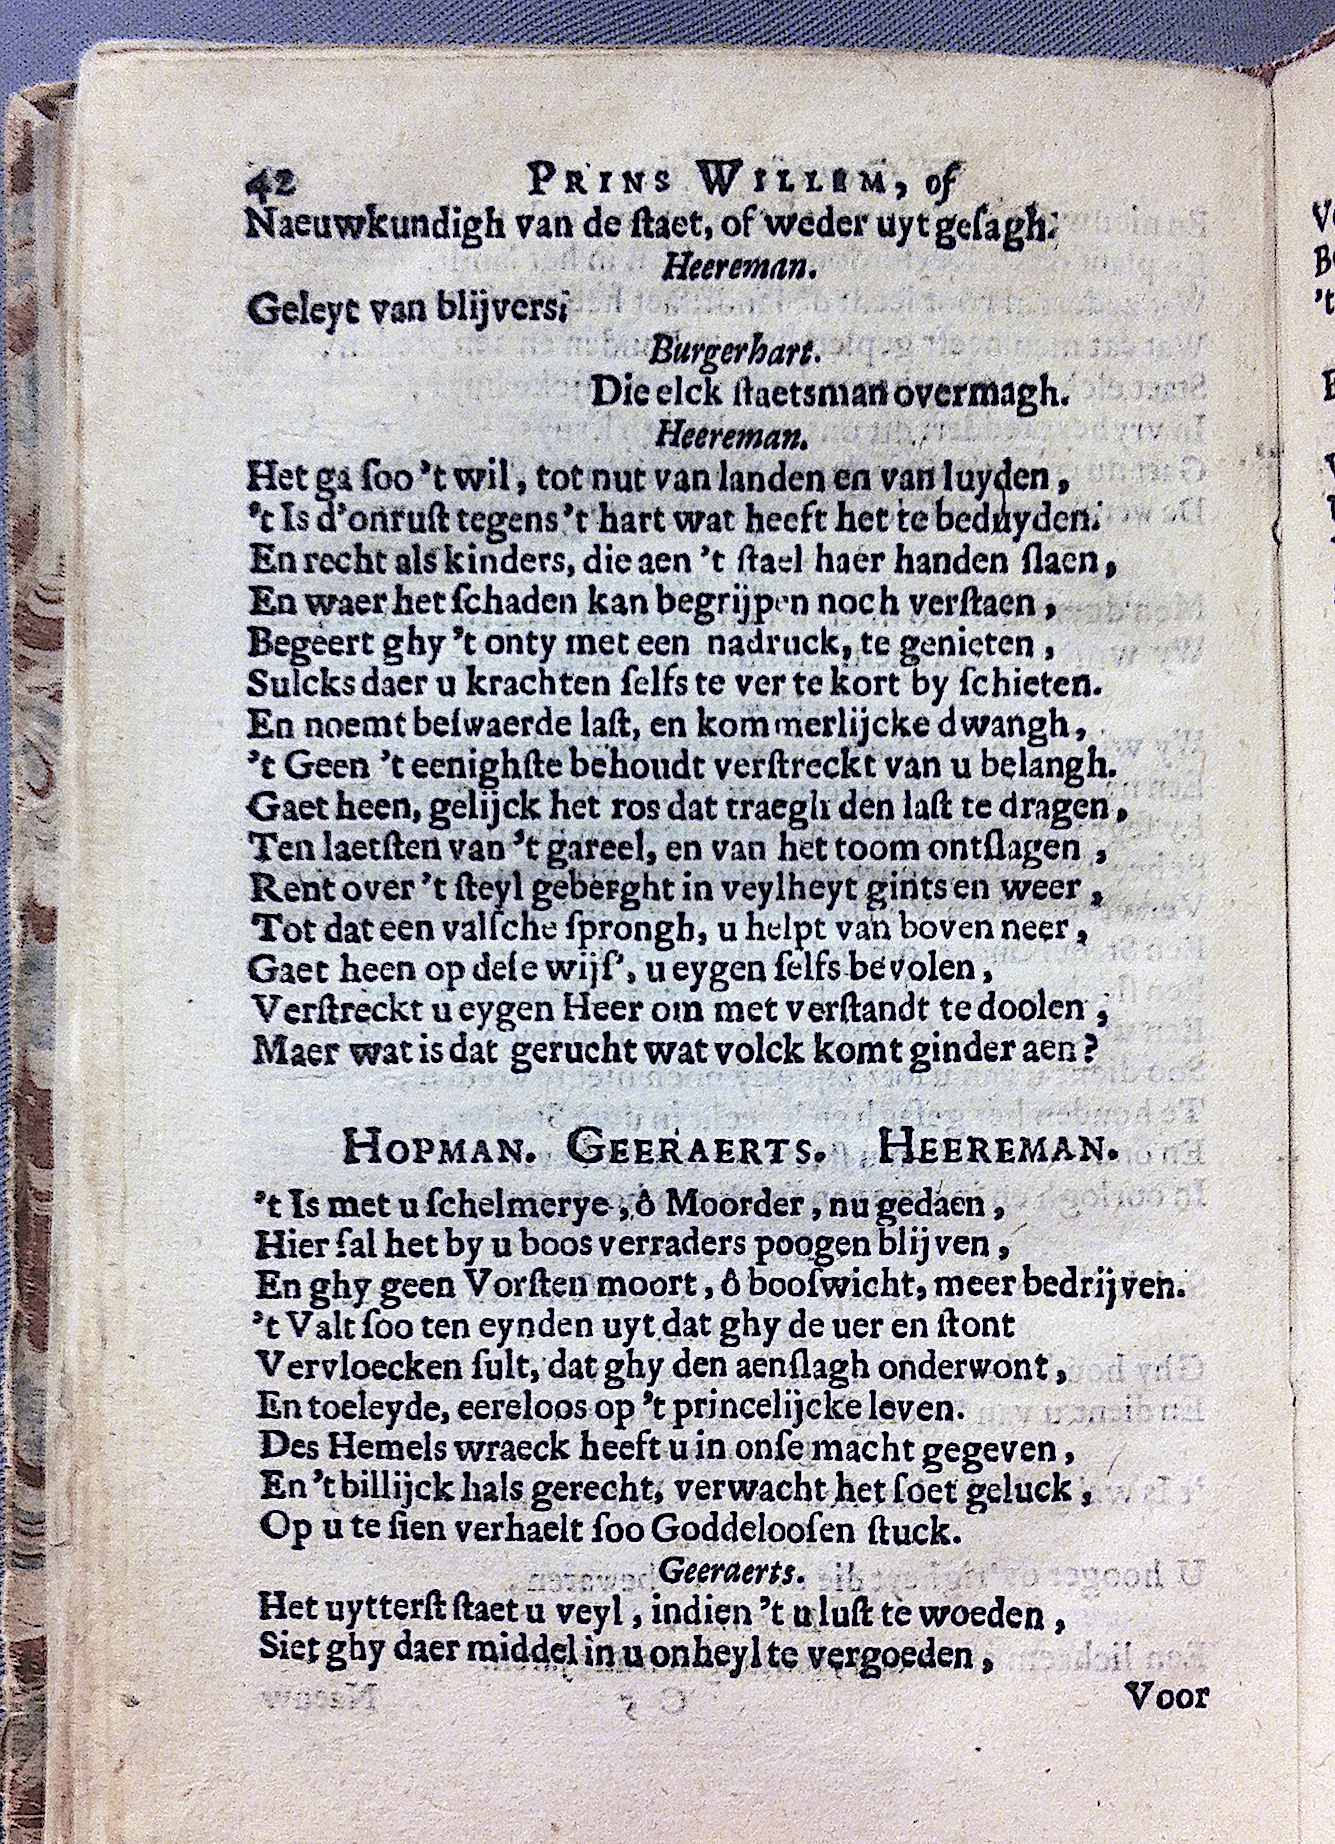 42 PRINS WILLEM, of
Naeuwkundigh van de ſtaet, of weder uyt geſagh:
Heereman.
Geleyt van blijvers;
Burgerhart.
Die elck ſtaetsman overmagh.
Heereman.
Het ga ſoo 't wil, tot nut van landen en van luyden,
't Is d'onruſt tegens 't hart wat heeft het te beduyden.
En recht als kinders, die aen 't ſtael haer handen ſlaen,
En waer het ſchaden kan begrijpen noch verſtaen,
Begeert ghy 't onty met een nadruck, te genieten,
Sulcks daer u krachten ſelfs te ver te kort by ſchieten.
En noemt beſwaerde laſt, en kommerlijcke dwangh,
't Geen 't eenighſte behoudt verſtreckt van u belangh.
Gaet heen, gelijck het ros dat traegh den laſt te dragen,
Ten laetſten van 't gareel, en van het toom ontſlagen,
Rent over 't ſteyl geberght in veylheyt gints en weer,
Tot dat een valſche ſprongh, u helpt van boven neer,
Gaet heen op deſe wijſ', u eygen ſelfs bevolen,
Verſtreckt u eygen Heer om met verſtandt te doolen;
Maer wat is dat gerucht wat volck komt ginder aen?
HOPMAN. GEERAERTS. HEEREMAN.
't Is met u ſchelmerye, ô Moorder, nu gedaen,
Hier ſal het by u boos verraders poogen blijven,
En ghy geen Vorſten moort, ô booſwicht, meer bedrijven.
't Valt ſoo ten eynden uyt dat ghy de uer en ſtont
Vervloecken ſult, dat ghy den aenſlagh onderwont,
En toeleyde, eereloos op 't princelijcke leven.
Des Hemels wraeck heeft u in onſe macht gegeven,
En 't billijck hals gerecht, verwacht het ſoet geluck,
Op u te ſien verhaelt ſoo Goddelooſen ſtuck.
Geeraerts.
Het uytterſt ſtaet u veyl, indien 't u luſt te woeden,
Siet ghy daer middel in u onheyl te vergoeden,
Voor